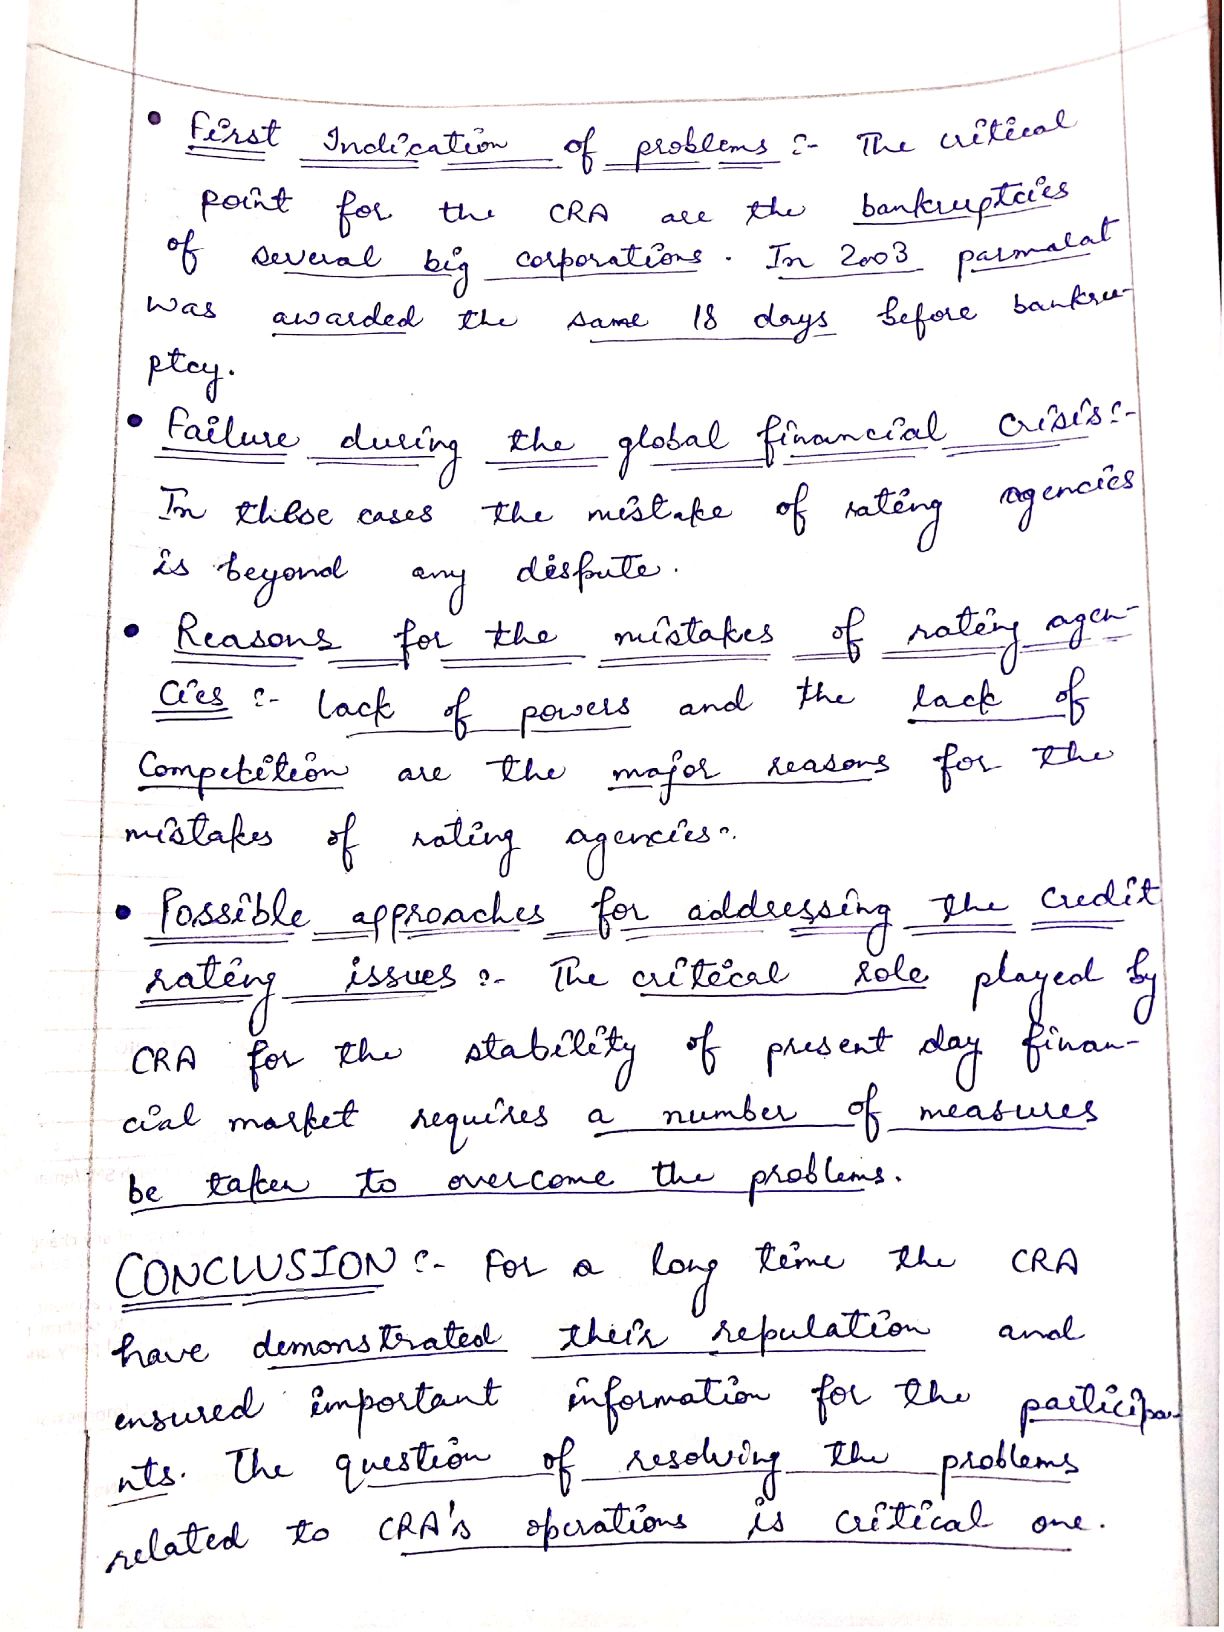 • First Indication of problems :- The critical
point for the CRA are the bankruptcies
of several big corporations. In 2003 parmalat
was awarded the same 18 days before bankru-
ptcy.
• Failure during the global financial crisis:-
In these cases the mistake of rating agencies
is beyond any dispute.
• Reasons for the mistakes of rating agen-
cies :- lack of powers and the lack of
Competition are the major reasons for the
mistakes of rating agencies.
• Possible approaches for addressing the credit
rating issues :- The critical role played by
CRA for the stability of present day finan-
cial market requires a number of measures
be taken to overcome the problems.
CONCLUSION :- For a long time the CRA
have demonstrated their reputation and
ensured important information for the participa-
nts. The question of resolving the problems
related to CRA's operations is critical one.